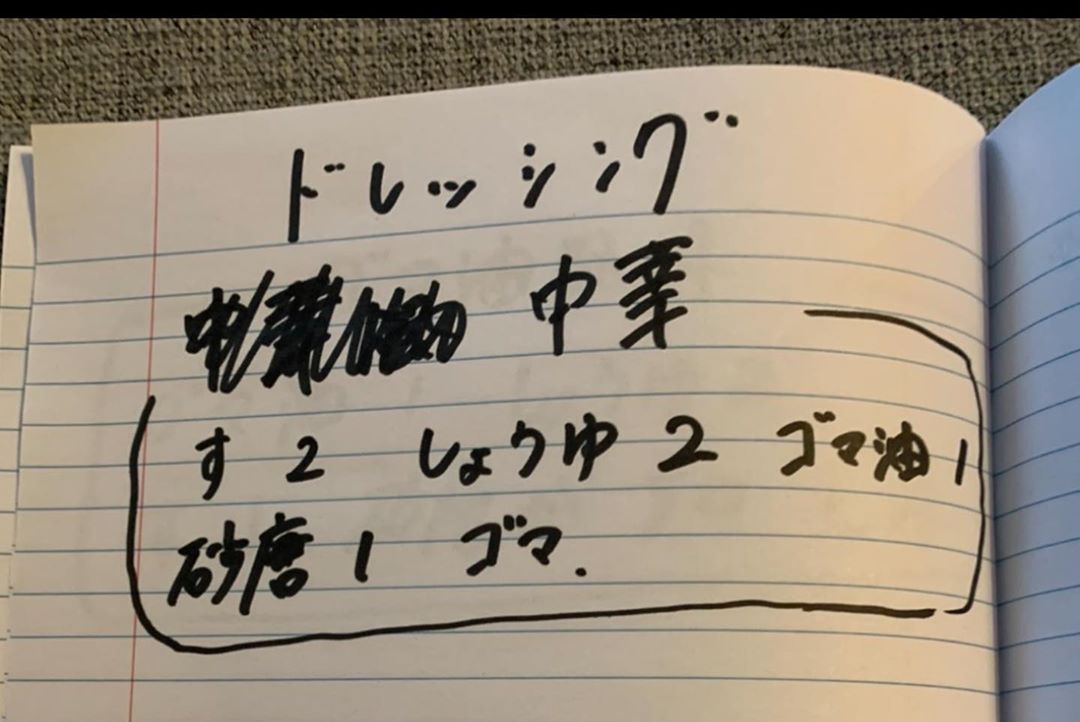 ドレッシング
中華
す 2 しょうゆ 2 ゴマ油 1
砂磨 1 ゴマ.